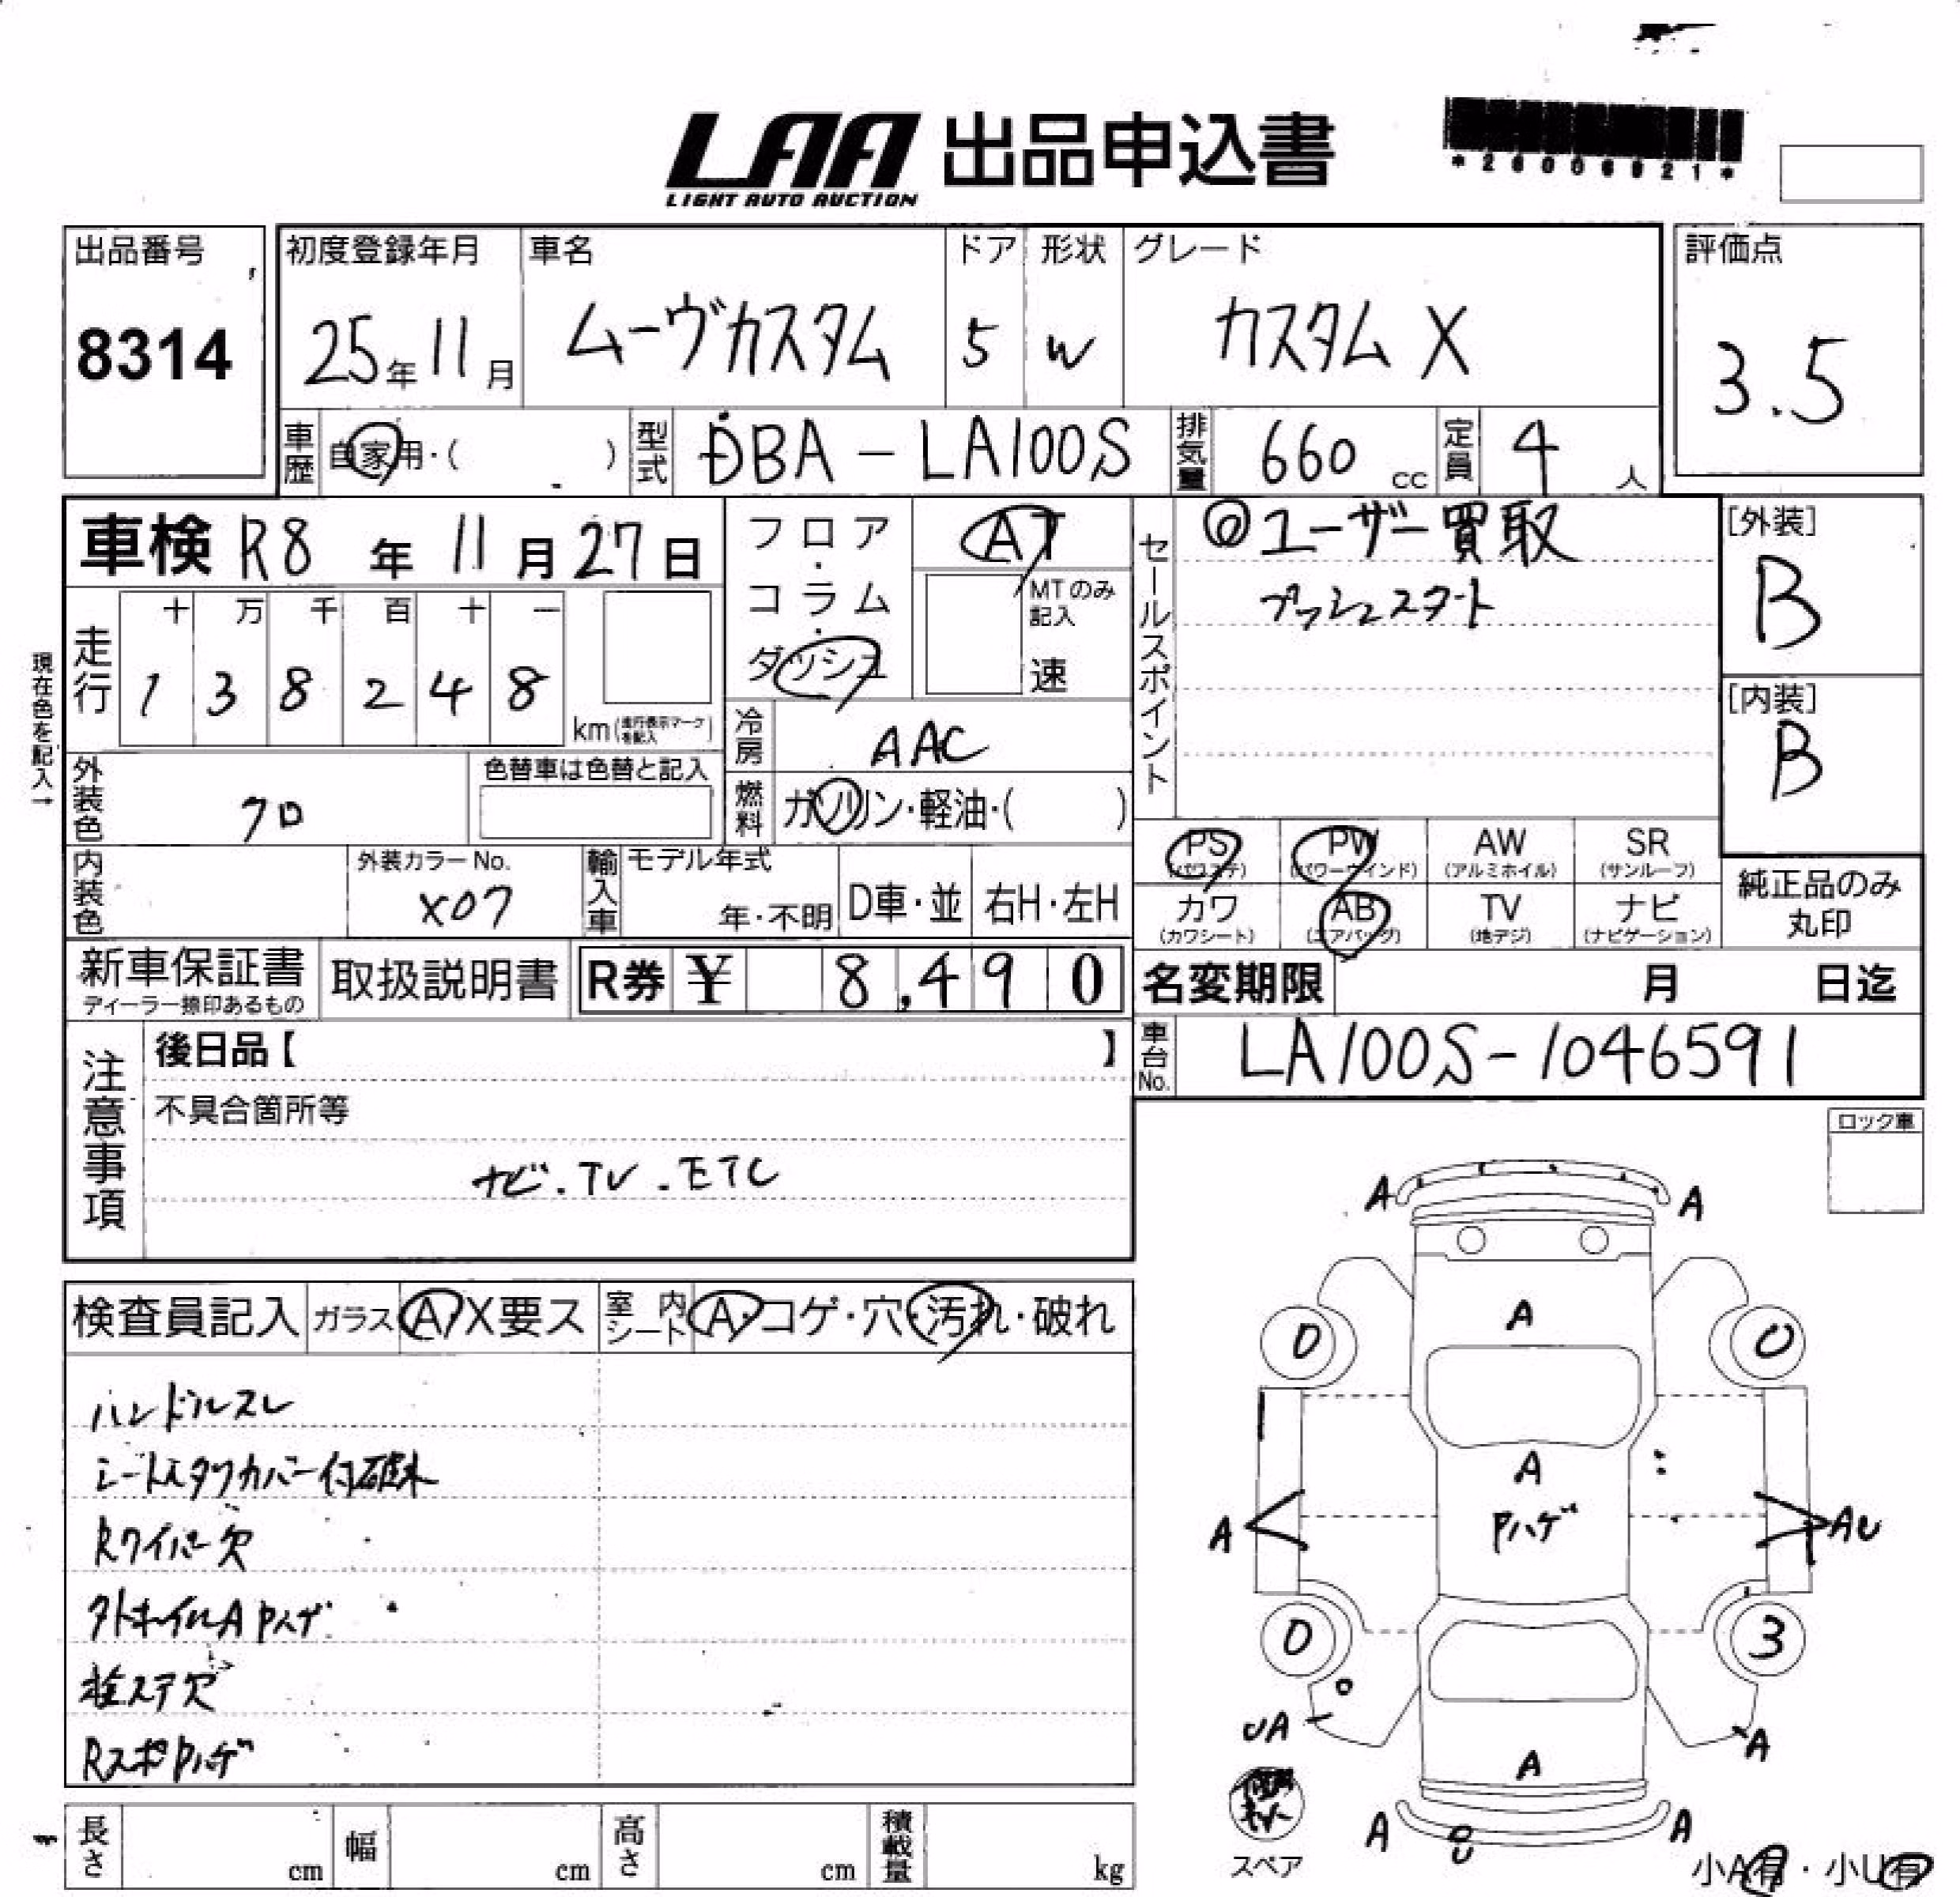 LAA 出品申込書
LIGHT AUTO AUCTION
*26006921*
出品番号
8314
初度登録年月
25年11月
車名
ムーヴカスタム
ドア
5
形状
W
グレード
カスタム X
評価点
3.5
車歴
自家用・( )
型式
DBA-LA100S
排気量
660 cc
定員
4人
車検 R8年11月27日
フロア・コラム・ダッシュ
AT
MTのみ記入
速
セールスポイント
◎ユーザー買取
プッシュスタート
[外装]
B
[内装]
B
現在色を記入→
走行
十 万 千 百 十 一
1 3 8 2 4 8
km(走行表示マークを記入)
冷房
AAC
外装色
クロ
色替車は色替と記入
燃料
ガソリン・軽油・( )
内装色
外装カラーNo.
X07
輸入車
モデル年式
年・不明
D車・並
右H・左H
PS (パワステ)
PW (パワーウインド)
AW (アルミホイル)
SR (サンルーフ)
カワ (カワシート)
AB (エアバッグ)
TV (地デジ)
ナビ (ナビゲーション)
純正品のみ丸印
新車保証書
ディーラー捺印あるもの
取扱説明書
R券 ¥ 8,490
名変期限 月 日迄
注意事項
後日品【 】
車台No.
LA100S-1046591
不具合箇所等
ナビ.TV.ETC
ロック車
検査員記入
ガラス
A X要ス
室内シート
A・コゲ・穴・汚れ・破れ
ハンドルスレ
Rワイパー欠
Rスポ Pハゲ
A A
A
0 0
A
Pハゲ
A AU
0 3
UA A
A
A A
スペア
小A有・小U有
長さ cm
幅 cm
高さ cm
積載量 kg